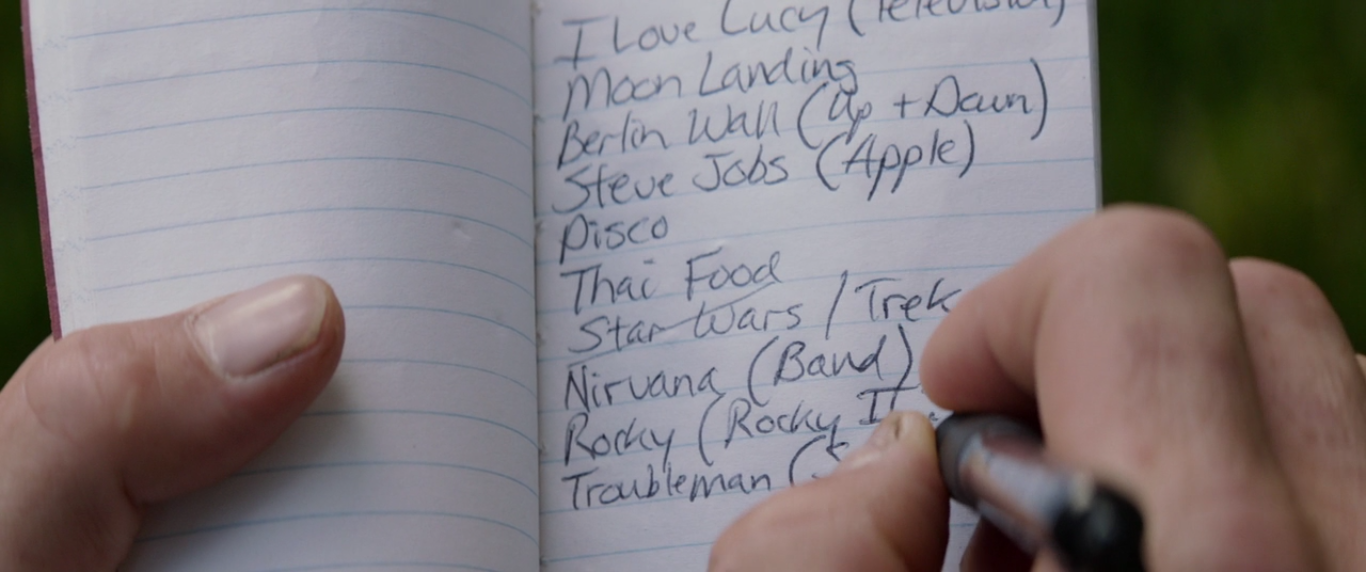 I Love Lucy (Television)
Moon Landing
Berlin Wall (Up + Down)
Steve Jobs (Apple)
Disco
Thai Food
Star Wars / Trek
Nirvana (Band)
Rocky (Rocky II
Troubleman (